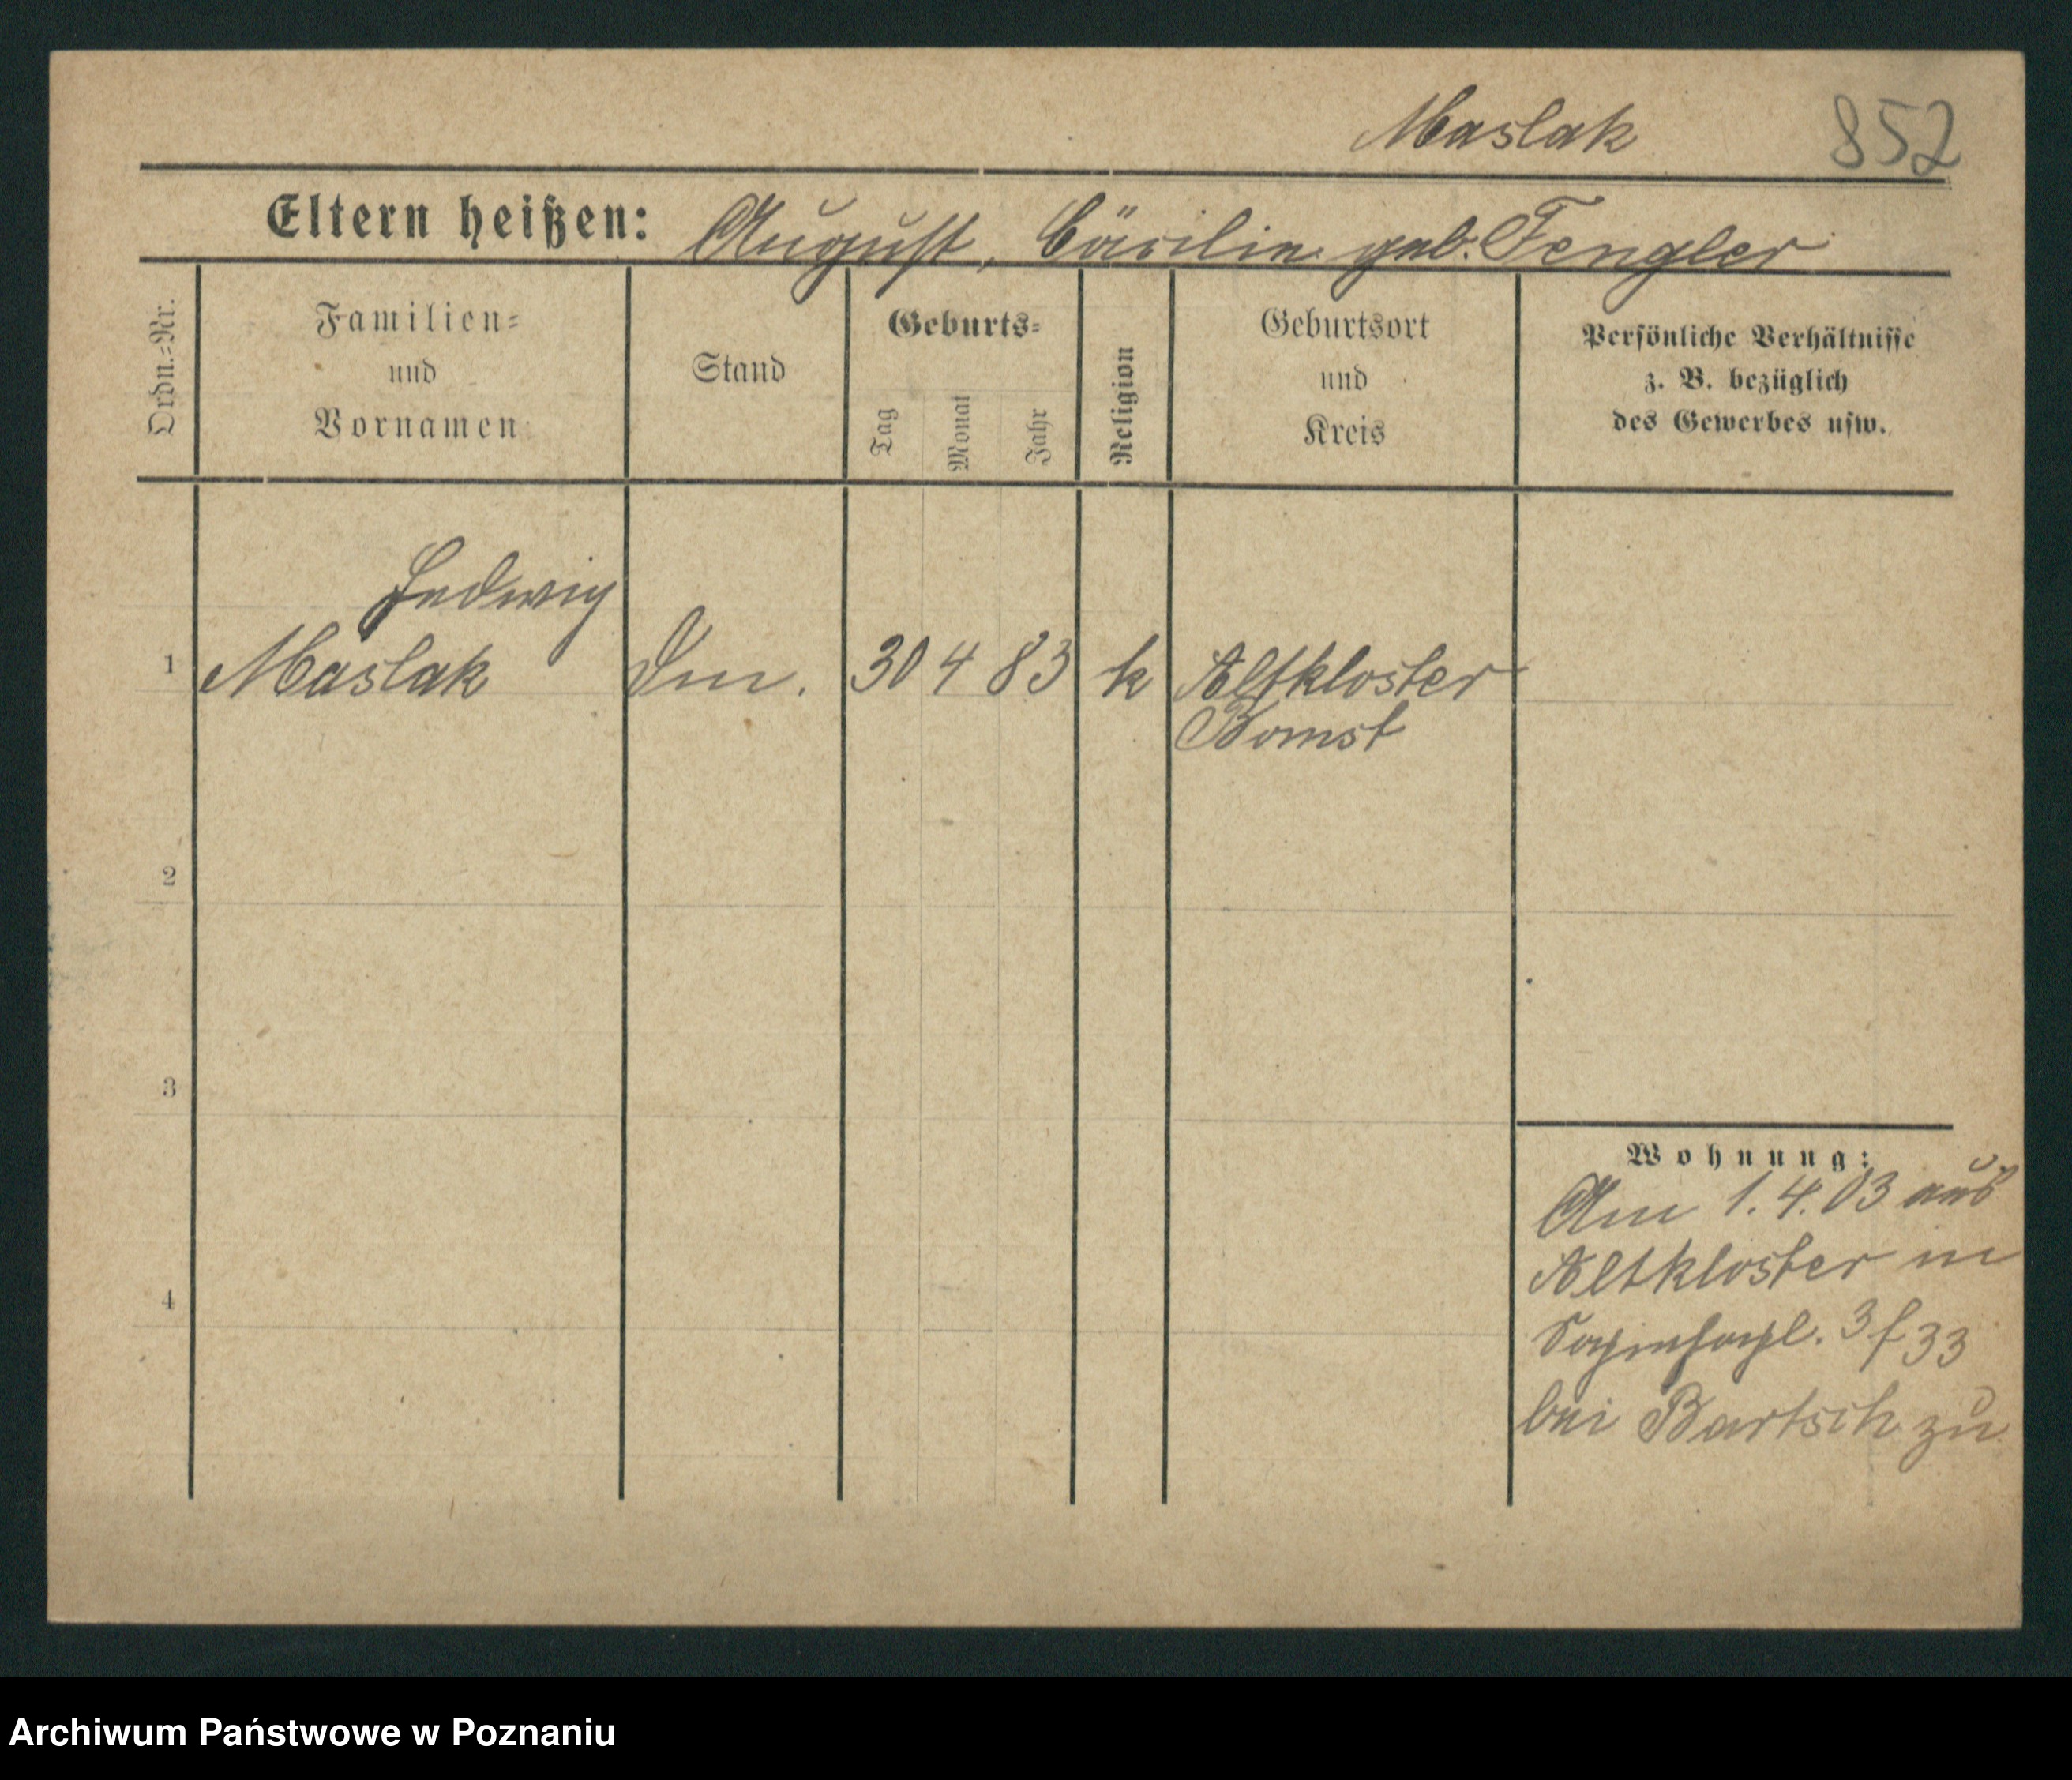 Maslak 852
Eltern heißen: August, Cäcilie geb. Fengler
Ordn.=Nr.
Familien=
und
Vornamen
Stand
Geburts=
Tag
Monat
Jahr
Religion
Geburtsort
und
Kreis
Persönliche Verhältnisse
z. B. bezüglich
des Gewerbes usw.
Hedwig
1 Maslak 30 4 83 k Altkloster
Bomst
2
3
4
Wohnung:
Am 1. 4. 03 aus
Altkloster in
3 33
bei Bartsch zu
Archiwum Państwowe w Poznaniu